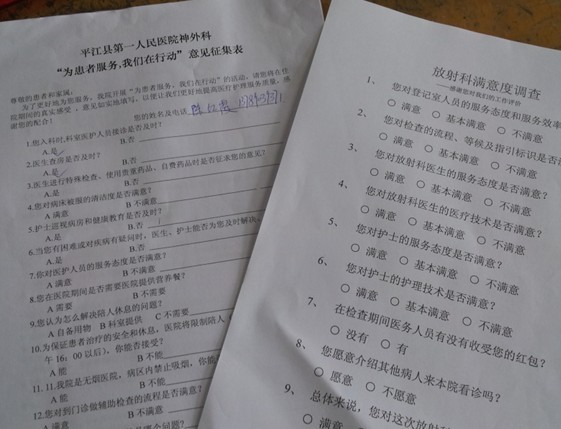 平江县第一人民医院神外科
“为患者服务,我们在行动”意见征集表
尊敬的患者和家属:
为了更好地为您服务,我院开展“为患者服务,我们在行动”的活动,请您将在住
院期间的真实感受、意见如实地填写,以便让我们更好地提高医疗护理服务质量,感
谢您的配合!
您的姓名及电话
1.您入科时,科室医护人员接诊是否及时?
A.是 B.否
2.医生查房是否及时?
A.是 B.否
3.医生进行特殊检查、使用贵重药品、自费药时是否征求您的意见?
A.是 B.否
4.您对病床被服的清洁度是否满意?
A 满意 B 不满意
5.护士巡视病房和健康教育是否及时?
A.是 B.否
6.当您有困难或对疾病有疑问时,医生、护士能否为您及时解决
A.是 B.否
7.你对医护人员的服务态度是否满意?
A 满意 B 不满意
8.您在医院期间是否需要医院提供营养餐?
A 需要 B 不需要
9.您认为怎么解决陪人休息的问题?
A 自备用物 B 科室提供 C 不需要
10.为保证患者治疗的安全和休息,医院将限制陪人
午 16:00 以后),你能否接受?
A 能 B 不能
11.11.我院是无烟医院,病区内禁止吸烟,你能
A 能 B 不能
12.您对到门诊做辅助检查的流程是否满意?
A 满意 B 不满意
哪个问题?
放射科满意度调查
——感谢您对我们的工作评价
1、 您对登记室人员的服务态度和服务效率
○ 满意 ○ 基本满意 ○ 不满意
2、 您对检查的流程、等候及指引标识是否
○ 满意 ○ 基本满意 ○ 不满意
3、 您对放射科医生的服务态度是否满意?
○ 满意 ○ 基本满意 ○ 不满意
4、 您对放射科医生的医疗技术是否满意?
○ 满意 ○ 基本满意 ○ 不满意
5、 您对护士的服务态度是否满意?
○ 满意 ○ 基本满意 ○ 不满意
6、 您对护士的护理技术是否满意?
○ 满意 ○ 基本满意 ○ 不满意
7、 在检查期间医务人员有没有收受您的红包?
○ 没有 ○ 有
8、 您愿意介绍其他病人来本院看诊吗?
○ 愿意 ○ 不愿意
9、 总体来说,您对这次放射
○ 满意